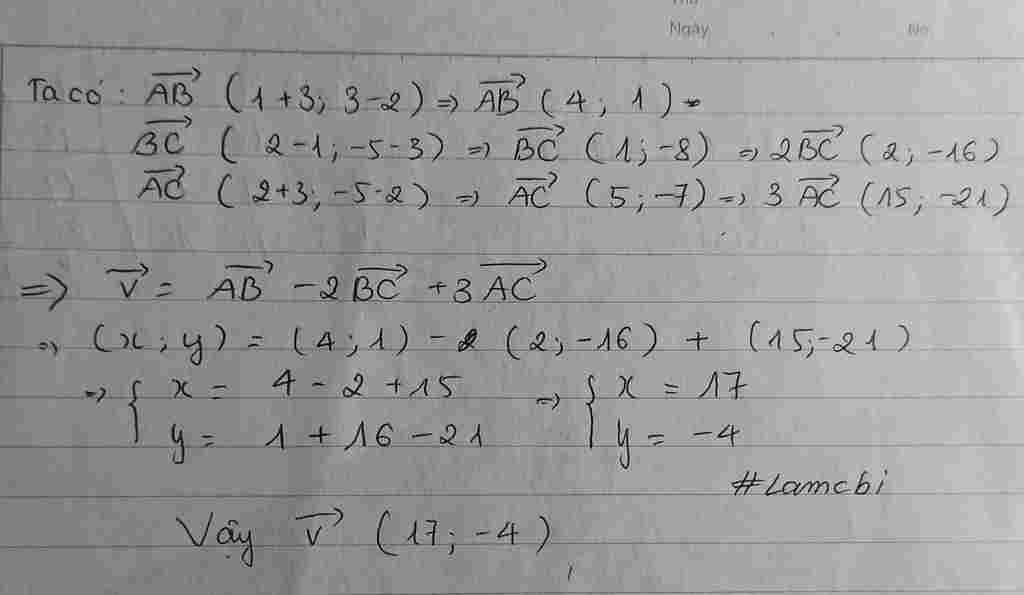 Thứ
Ngày . . No
Ta có : \overrightarrow{AB} (1+3; 3-2) => \overrightarrow{AB} (4; 1)
\overrightarrow{BC} (2-1; -5-3) => \overrightarrow{BC} (1; -8) => 2\overrightarrow{BC} (2; -16)
\overrightarrow{AC} (2+3; -5-2) => \overrightarrow{AC} (5; -7) => 3\overrightarrow{AC} (15; -21)
=> \overrightarrow{v} = \overrightarrow{AB} - 2\overrightarrow{BC} + 3\overrightarrow{AC}
=> (x; y) = (4; 1) - (2; -16) + (15; -21)
=> { x = 4 - 2 + 15 => { x = 17
y = 1 + 16 - 21 y = -4
#Lamcbi
Vậy \overrightarrow{v} (17; -4)